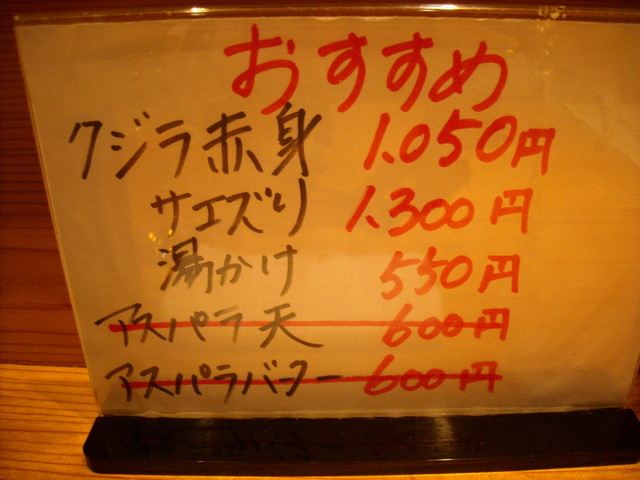 おすすめ
クジラ赤身 1,050円
サエズリ 1,300円
湯かけ 550円
アスパラ天 600円
アスパラバター 600円